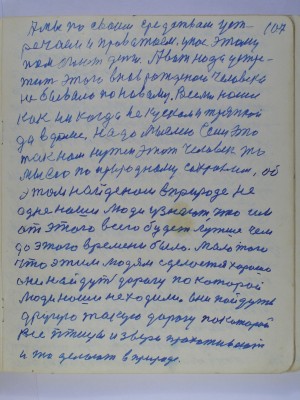 А мы по своим средствам уст-
речаем и провожаем. у нас этому
дети. А вот надо устре-
тить этого новорожденого человека
не бывало по новому. Всем нашим
как им когда не куском и тряпкой
да в доме. Надо мысли Если это
так нам нужен этот человек то
мы его по природному сохраним, об
этом найденом в природе не
одне наши люди узнают что им
от этого всего будет лучше чем
до этого времени было. Мало того
что этим людям сделается хорошо
они найдут дорогу по которой
люди наши не ходили. они найдут
другую такую дорогу по которой
все птицы и звери прохаживают
и это делают в природе.
107